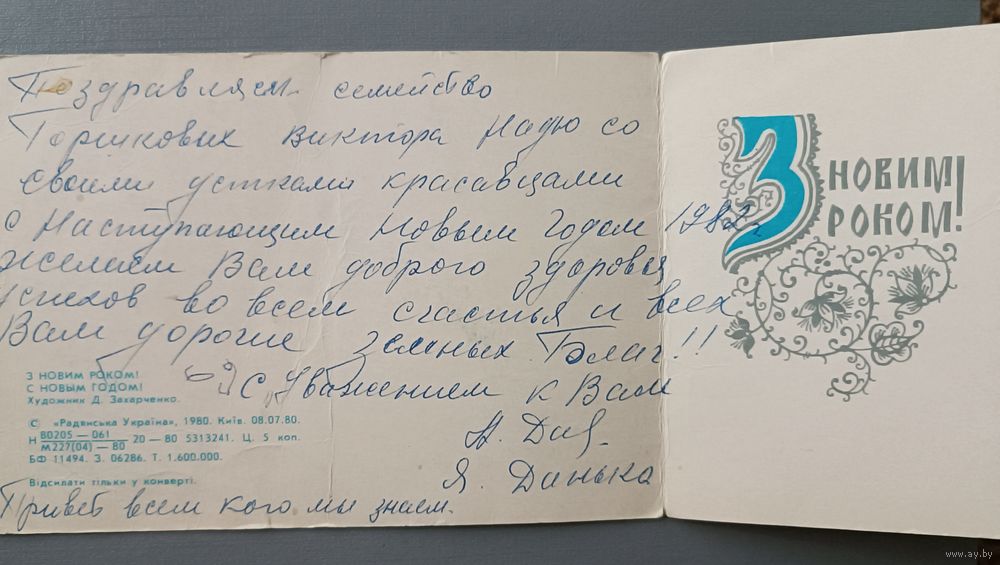 Поздравляем семейство
Горшкових Виктора Надю со
своими детками красавцами
с Наступающим Новым Годом 1982 г
Желаем Вам доброго здоровья
успехов во всем счастья и всех
Вам дорогие земных Благ!!
С Уважением к Вам
Я. Данько
Привет всем кого мы знаем.
З НОВИМ РОКОМ!
С НОВЫМ ГОДОМ!
Художник Д. Захарченко.
© «Радянська Україна», 1980. Київ. 08.07.80.
Н 80205—061
М227(04)—80 20—80 5313241. Ц. 5 коп.
БФ 11494. З. 06286. Т. 1.600.000.
Відсилати тільки у конверті.
З НОВИМ
РОКОМ!
www.ay.by